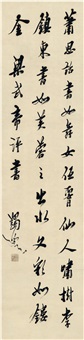 蕭思話書如舞女低腰仙人嘯樹李
鎮東書如芙蓉之出水文彩如鏤
金 梁武帝評書